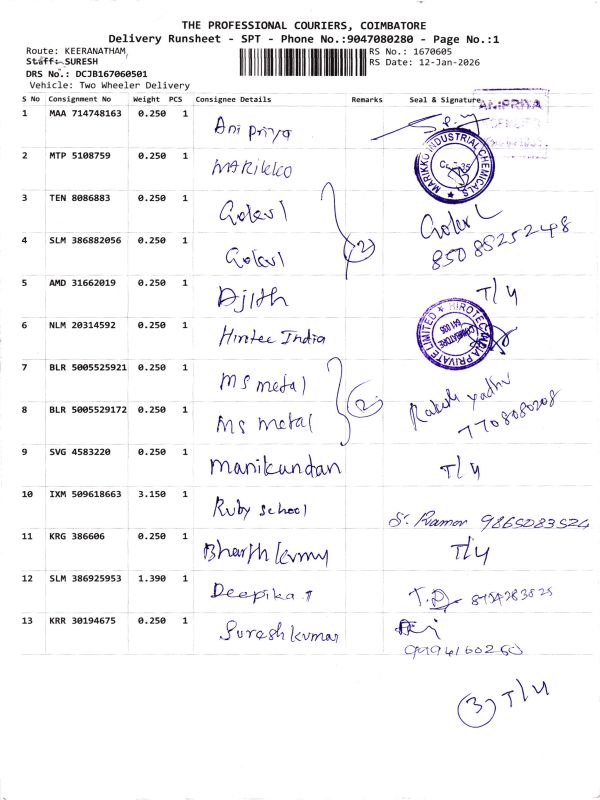 THE PROFESSIONAL COURIERS, COIMBATORE
Delivery Runsheet - SPT - Phone No.:9047080280 - Page No.:1
Route: KEERANATHAM, RS No.: 1670605
Staff: SURESH RS Date: 12-Jan-2026
DRS No.: DCJB167060501
Vehicle: Two Wheeler Delivery
S No Consignment No Weight PCS Consignee Details Remarks Seal & Signature
1 MAA 714748163 0.250 1 Ani priya ANIPRIYA
2 MTP 5108759 0.250 1 MARikko MARIKKO INDUSTRIAL CHEMICALS
3 TEN 8086883 0.250 1
4 SLM 386882056 0.250 1 (2) 8508525248
5 AMD 31662019 0.250 1 Ajith T/y
6 NLM 20314592 0.250 1 Hirotec India HIROTEC INDIA PRIVATE LIMITED COIMBATORE
7 BLR 5005525921 0.250 1 MS metal
8 BLR 5005529172 0.250 1 MS metal (2) 7708080208
9 SVG 4583220 0.250 1 Manikandan T/y
10 IXM 509618663 3.150 1 Ruby school 9865083524
11 KRG 386606 0.250 1 T/y
12 SLM 386925953 1.390 1 Deepika.T
13 KRR 30194675 0.250 1 Sureshkumar
9994160250
(3) T/y